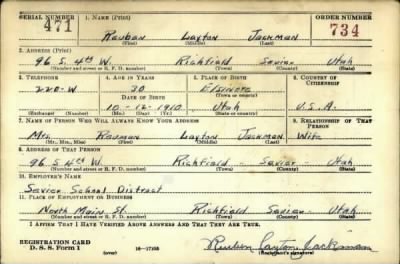 SERIAL NUMBER 1. NAME (Print) ORDER NUMBER
471 Reuban Layton Jackman 734
(First) (Middle) (Last)
2. ADDRESS (Print)
96 S. 4th W. Richfield Sevier Utah
(Number and street or R. F. D. number) (Town) (County) (State)
3. TELEPHONE 4. AGE IN YEARS 5. PLACE OF BIRTH 6. COUNTRY OF CITIZENSHIP
220-W 30 Elsinore
DATE OF BIRTH (Town or county)
10-12-1910 Utah U.S.A.
(Mo.) (Day) (Yr.) (State or country)
7. NAME OF PERSON WHO WILL ALWAYS KNOW YOUR ADDRESS 8. RELATIONSHIP OF THAT PERSON
Mrs. Layton Jackman Wife
(Mr., Mrs., Miss) (First) (Middle) (Last)
9. ADDRESS OF THAT PERSON
96 S. 4th W. Richfield Sevier Utah
(Number and street or R. F. D. number) (Town) (County) (State)
10. EMPLOYER'S NAME
Sevier School District
11. PLACE OF EMPLOYMENT OR BUSINESS
North Main St. Richfield Sevier Utah
(Number and street or R. F. D. number) (Town) (County) (State)
I AFFIRM THAT I HAVE VERIFIED ABOVE ANSWERS AND THAT THEY ARE TRUE.
REGISTRATION CARD
D. S. S. Form 1 (over) 16-17105 Reuben Layton Jackman
(Registrant's signature)